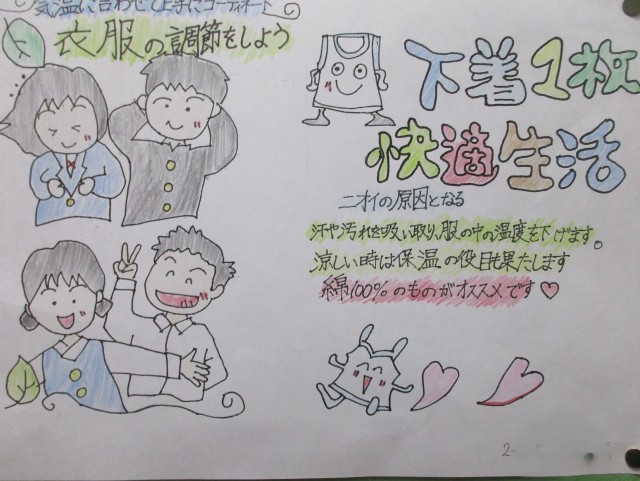 気温に合わせて上手にコーディネート
衣服の調節をしよう
下着1枚
快適生活
ニオイの原因となる
汗や汚れを吸い取り、服の中の温度を下げます。
涼しい時は保温の役目も果たします
綿100%のものがオススメです♡
2-